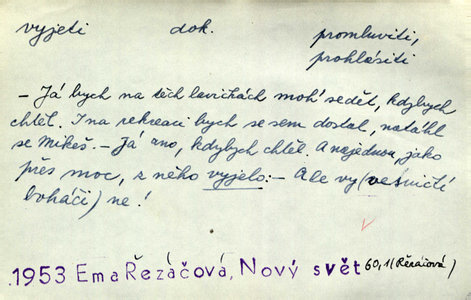 vyjeti dok. promluviti,
prohlásiti
– Já bych na těch lavičkách moh' sedět, kdybych
chtěl. I na rekreaci bych se sem dostal, natáhl
se Mikeš. – Já ano, kdybych chtěl. A najednou, jako
přes moc, z něho vyjelo: – Ale vy (vesničtí
boháči) ne!
.1953 Ema Řezáčová, Nový svět 60,1 (Řezáčová)